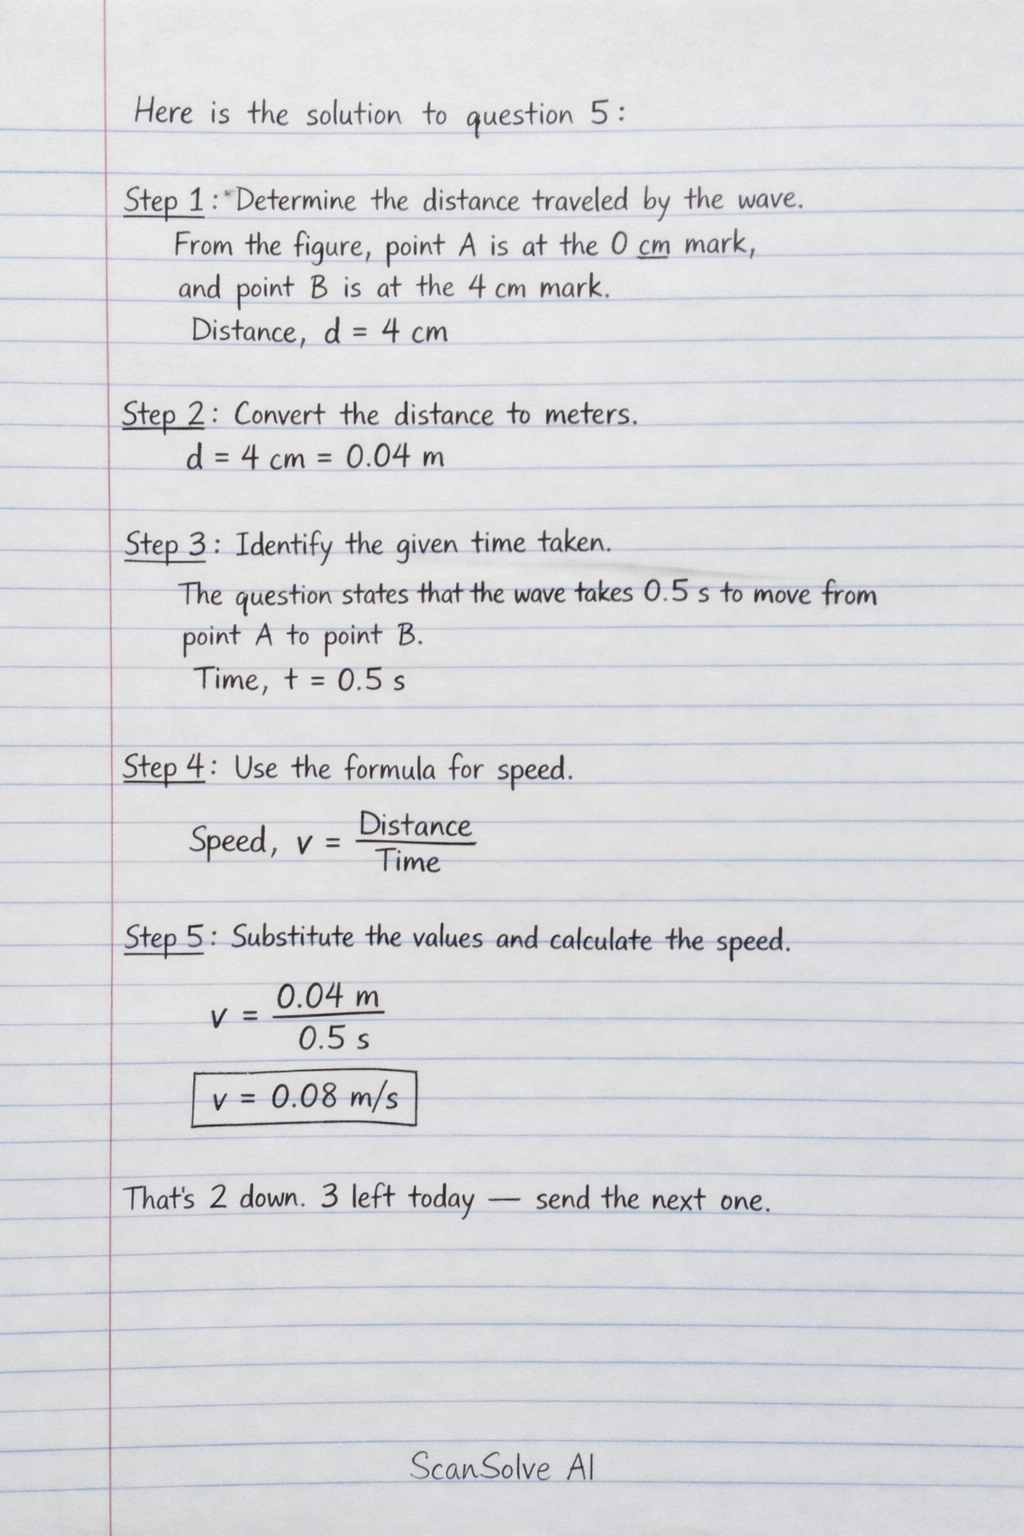 Here is the solution to question 5:
Step 1: Determine the distance traveled by the wave.
From the figure, point A is at the 0 cm mark,
and point B is at the 4 cm mark.
Distance, d = 4 cm
Step 2: Convert the distance to meters.
d = 4 cm = 0.04 m
Step 3: Identify the given time taken.
The question states that the wave takes 0.5 s to move from
point A to point B.
Time, t = 0.5 s
Step 4: Use the formula for speed.
Speed, v = Distance
Time
Step 5: Substitute the values and calculate the speed.
v = 0.04 m
0.5 s
v = 0.08 m/s
That's 2 down. 3 left today — send the next one.
ScanSolve AI